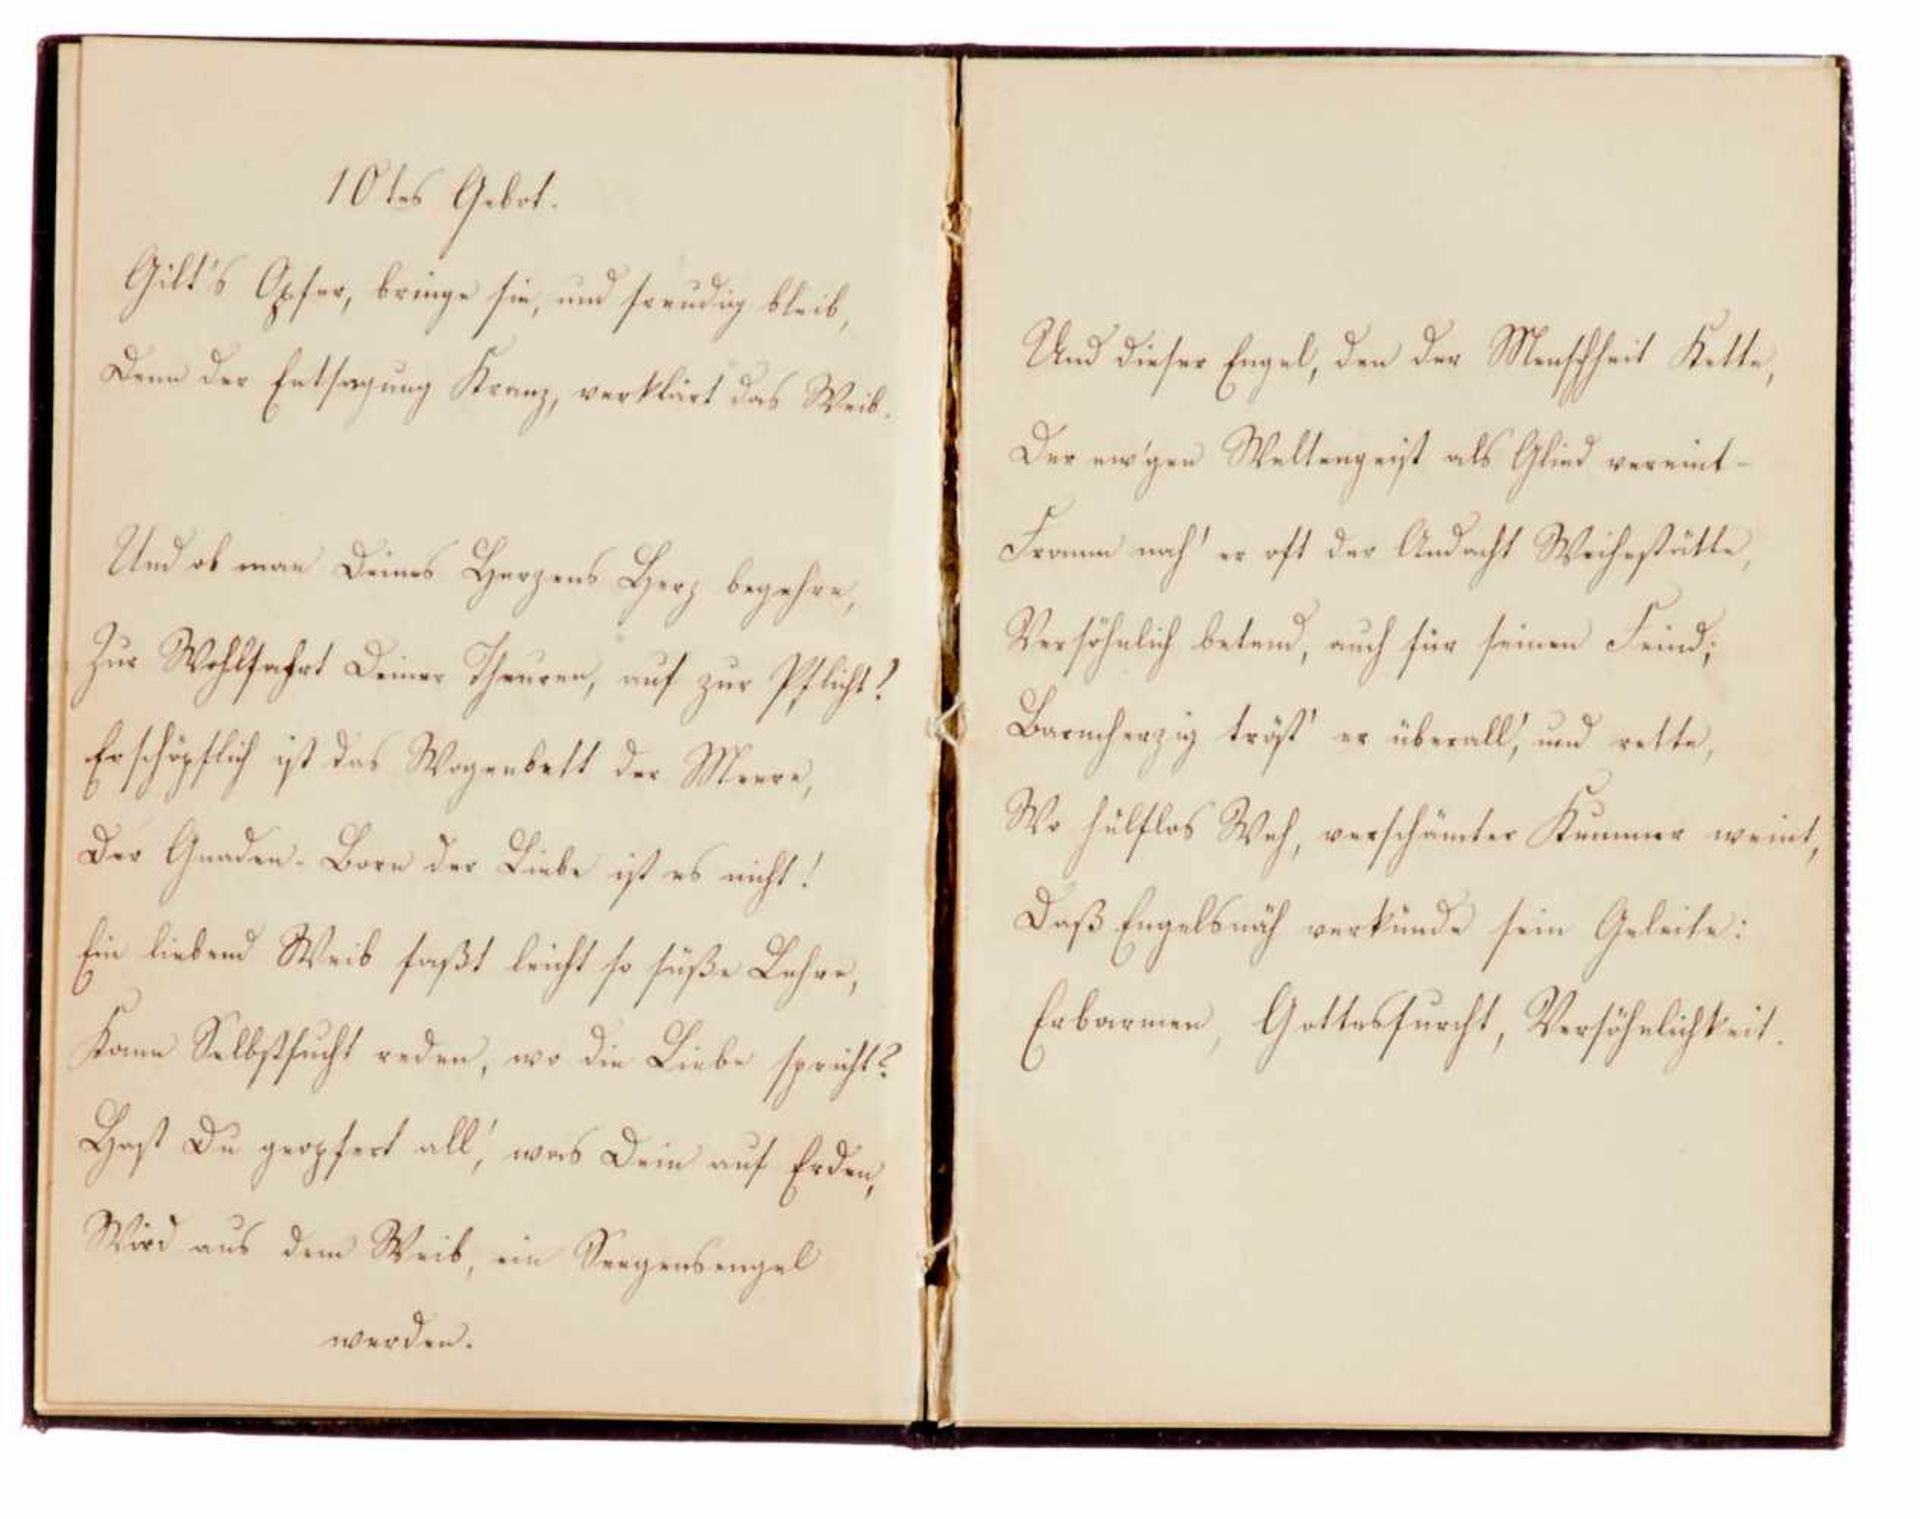 10tes Gebot.
Gilt's Opfer, bringe sie, und freudig bleib,
Denn der Entsagung Kranz, verklärt das Weib.
Und ob man Deines Herzens Herz begehre,
Zur Wohlfahrt Deiner Theuren, auf zur Pflicht!
Erschöpflich ist das Wogenbett der Meere,
Der Gnaden-Born der Liebe ist es nicht!
Ein liebend Weib faßt leicht so süße Lehre,
Kann Selbstsucht reden, wo die Liebe spricht?
Hast Du geopfert all', was Dein auf Erden,
Wird aus dem Weib, ein Seegensengel
werden.
Und dieser Engel, den der Menschheit Kette,
Der ew'gen Weltengeist als Glied vereint -
Fromm nah' er oft der Andacht Weihestätte,
Versöhnlich betend, auch für seinen Feind;
Barmherzig tröst' er überall', und rette,
Wo hülflos Weh, verschämter Kummer weint,
Daß Engelsnäh verkünde sein Geleite:
Erbarmen, Gottesfurcht, Versöhnlichkeit.